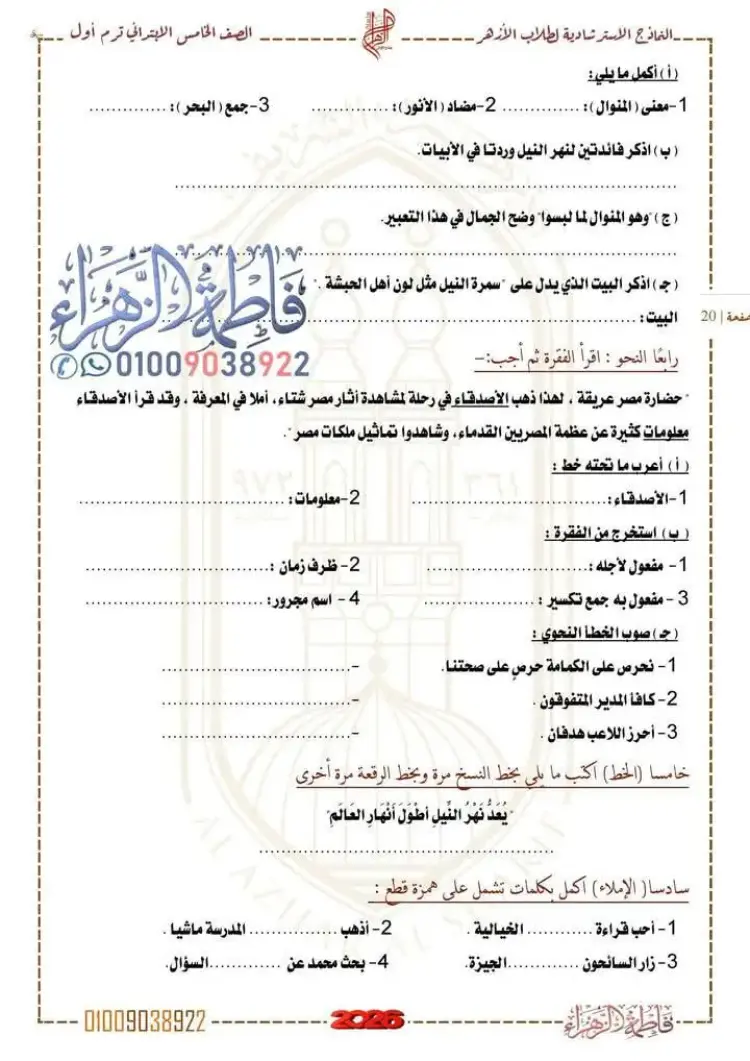 النماذج الاسترشادية لطلاب الأزهر
الأزهر
الصف الخامس الابتدائي ترم أول
( أ ) أكمل ما يلي:
1- معنى (المنوال): ............ 2- مضاد (الأنور): ............ 3- جمع (البحر): ............
( ب ) اذكر فائدتين لنهر النيل وردتا في الأبيات.
................................................................
( ج ) "وهو المنوال لما لبسوا" وضح الجمال في هذا التعبير.
................................................................
( جـ ) اذكر البيت الذي يدل على "سمرة النيل مثل لون أهل الحبشة ."
البيت: ................................................................
فاطمة الزهراء
01009038922
صفحة | 20
رابعًا النحو : اقرأ الفقرة ثم أجب:-
" حضارة مصر عريقة ، لهذا ذهب الأصدقاء في رحلة لمشاهدة آثار مصر شتاء، أملا في المعرفة ، وقد قرأ الأصدقاء
معلومات كثيرة عن عظمة المصريين القدماء، وشاهدوا تماثيل ملكات مصر".
( أ ) أعرب ما تحته خط :
1- الأصدقاء: ............................ 2- معلومات: ............................
( ب ) استخرج من الفقرة :
1- مفعول لأجله: ............................ 2- ظرف زمان : ............................
3- مفعول به جمع تكسير : .................... 4- اسم مجرور: ............................
( جـ ) صوب الخطأ النحوي :
1- نحرص على الكمامة حرصٍ على صحتنا. -............................
2- كافأ المدير المتفوقون . -............................
3- أحرز اللاعب هدفان . -............................
خامسا (الخط) اكتب ما يلي بخط النسخ مرة وبخط الرقعة مرة أخرى
"يُعَدُّ نَهْرُ النِّيلِ أطْوَلَ أَنْهَارِ العَالَمِ"
................................................................
سادسا( الإملاء) اكمل بكلمات تشمل على همزة قطع :
1- أحب قراءة ............ الخيالية . 2- أذهب ............ المدرسة ماشيا .
3- زار السائحون ............ الجيزة. 4- بحث محمد عن ............ السؤال.
٣٦١ ٩٧٢
AL AZHAR AL SHARIF
01009038922
2026
فاطمة الزهراء